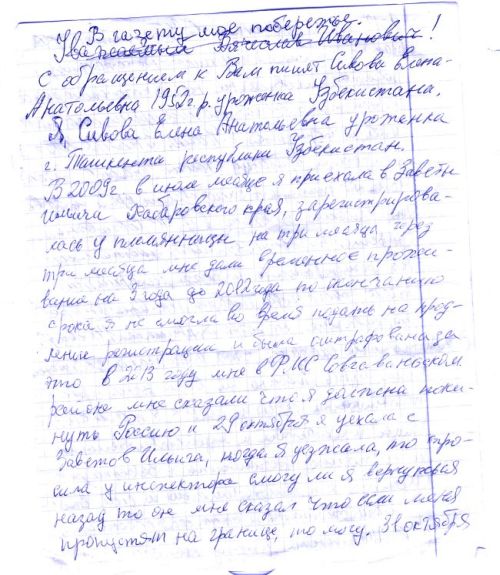 В газету мое побережье.
Уважаемый Вячеслав Иванович!
С обращением к Вам пишет Сивова Елена
Анатольевна 1952 г.р. уроженка Узбекистана.
Я, Сивова Елена Анатольевна уроженка
г. Ташкента республики Узбекистан.
В 2009 г. в июле месяце я приехала в Заветы
ильича Хабаровского края, зарегистрирова-
лась у племянницы на три месяца через
три месяца мне дали временное прожи-
вание на 3 года до 2012 года по окончанию
срока я не смогла во время подать на прод-
ление регистрации и была оштрафована за
это в 2013 году мне в РИС Совгаванском
районе мне сказали что я должна поки-
нуть Россию и 29 октября я уехала с
Заветов Ильича, когда я уезжала, то спро-
сила у инспектора смогу ли я вернуться
назад то он мне сказал что если меня
пропустят на границе, то могу. 31 октября